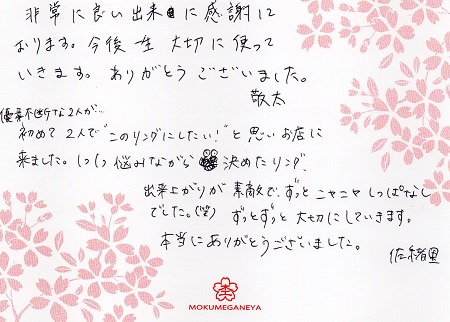 非常に良い出来に感謝して
おります。今後一生大切に使って
いきます。ありがとうございました。
敬太
優柔不断な2人が…
初めて2人で“このリングにしたい!”と思いお店に
来ました。しっっ悩みながら決めたリング、
出来上がりが素敵で、ずっとニヤニヤしっぱなし
でした。(笑) ずっとずっと大切にしていきます。
本当にありがとうございました。
佐緒里
MOKUMEGANEYA